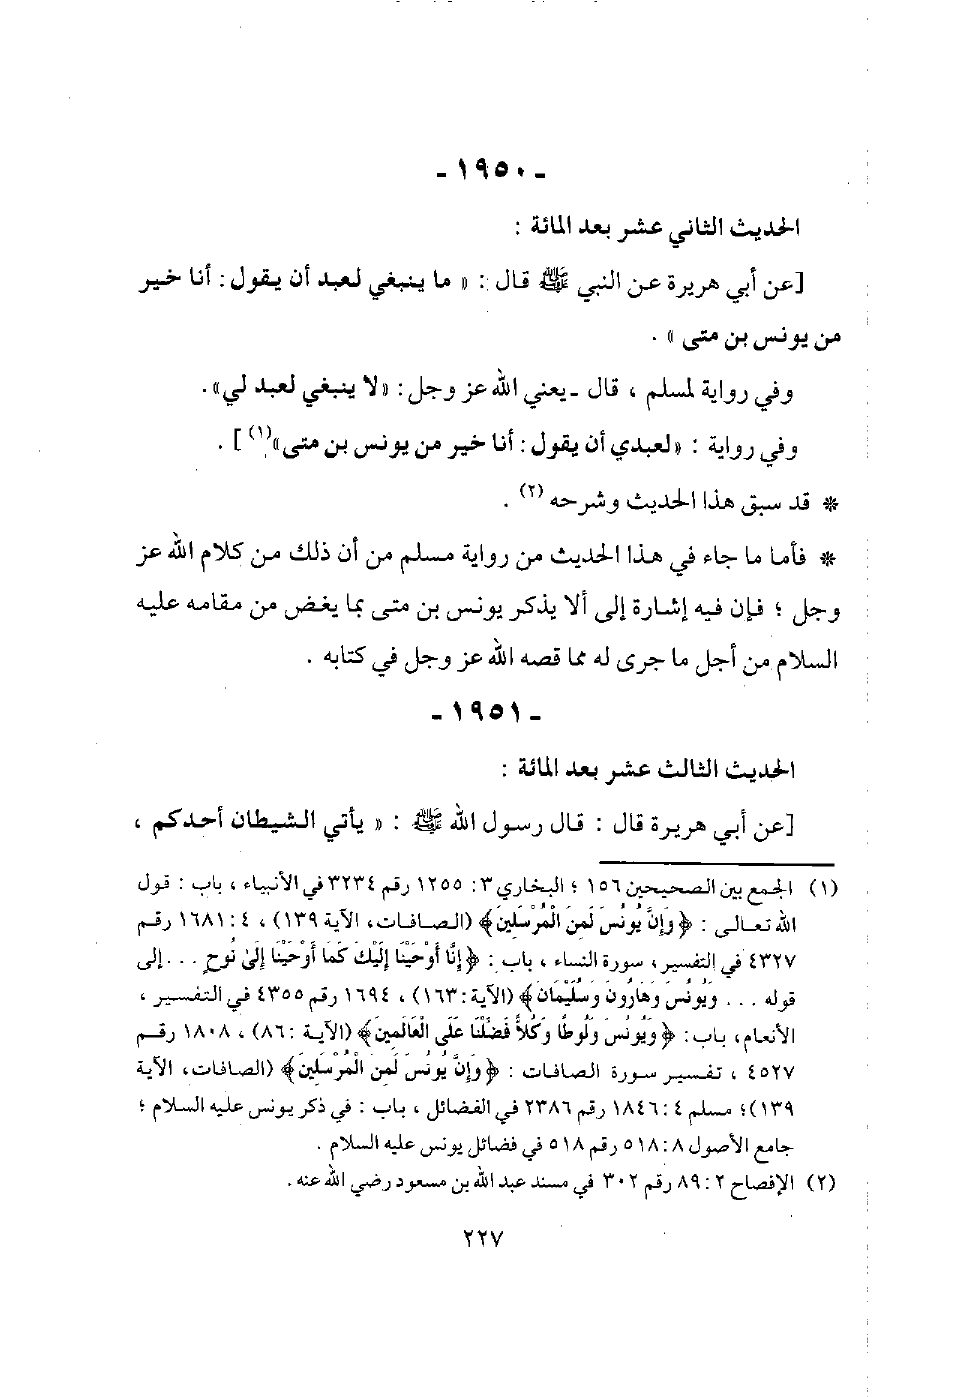 - ١٩٥٠ -
الحديث الثاني عشر بعد المائة :
[عن أبي هريرة عن النبي ﷺ قال : « ما ينبغي لعبد أن يقول : أنا خير
من يونس بن متى » .
وفي رواية لمسلم ، قال -يعني الله عز وجل : «لا ينبغي لعبد لي» .
وفي رواية : «لعبدي أن يقول : أنا خير من يونس بن متى»(١)] .
* قد سبق هذا الحديث وشرحه (٢) .
* فأما ما جاء في هذا الحديث من رواية مسلم من أن ذلك من كلام الله عز
وجل ؛ فإن فيه إشارة إلى ألا يذكر يونس بن متى بما يغض من مقامه عليه
السلام من أجل ما جرى له مما قصه الله عز وجل في كتابه .
- ١٩٥١ -
الحديث الثالث عشر بعد المائة :
[عن أبي هريرة قال : قال رسول الله ﷺ : « يأتي الشيطان أحدكم ،
(١) الجمع بين الصحيحين ١٥٦ ؛ البخاري ٣ : ١٢٥٥ رقم ٣٢٣٤ في الأنبياء ، باب : قول
الله تعالى : ﴿وَإِنَّ يُونُسَ لَمِنَ الْمُرْسَلِينَ﴾ (الصافات، الآية ١٣٩) ، ٤ : ١٦٨١ رقم
٤٣٢٧ في التفسير ، سورة النساء ، باب : ﴿إِنَّا أَوْحَيْنَا إِلَيْكَ كَمَا أَوْحَيْنَا إِلَىٰ نُوحٍ . . . إلى
قوله . . . وَيُونُسَ وَهَارُونَ وَسُلَيْمَانَ﴾ (الآية : ١٦٣) ، ١٦٩٤ رقم ٤٣٥٥ في التفسير ،
الأنعام، باب : ﴿وَيُونُسَ وَلُوطًا وَكُلاًّ فَضَّلْنَا عَلَى الْعَالَمِينَ﴾ (الآية : ٨٦) ، ١٨٠٨ رقم
٤٥٢٧ ، تفسير سورة الصافات : ﴿وَإِنَّ يُونُسَ لَمِنَ الْمُرْسَلِينَ﴾ (الصافات، الآية
١٣٩)؛ مسلم ٤ : ١٨٤٦ رقم ٢٣٨٦ في الفضائل ، باب : في ذكر يونس عليه السلام ؛
جامع الأصول ٨ : ٥١٨ رقم ٥١٨ في فضائل يونس عليه السلام .
(٢) الإفصاح ٢ : ٨٩ رقم ٣٠٢ في مسند عبد الله بن مسعود رضي الله عنه .
٢٢٧